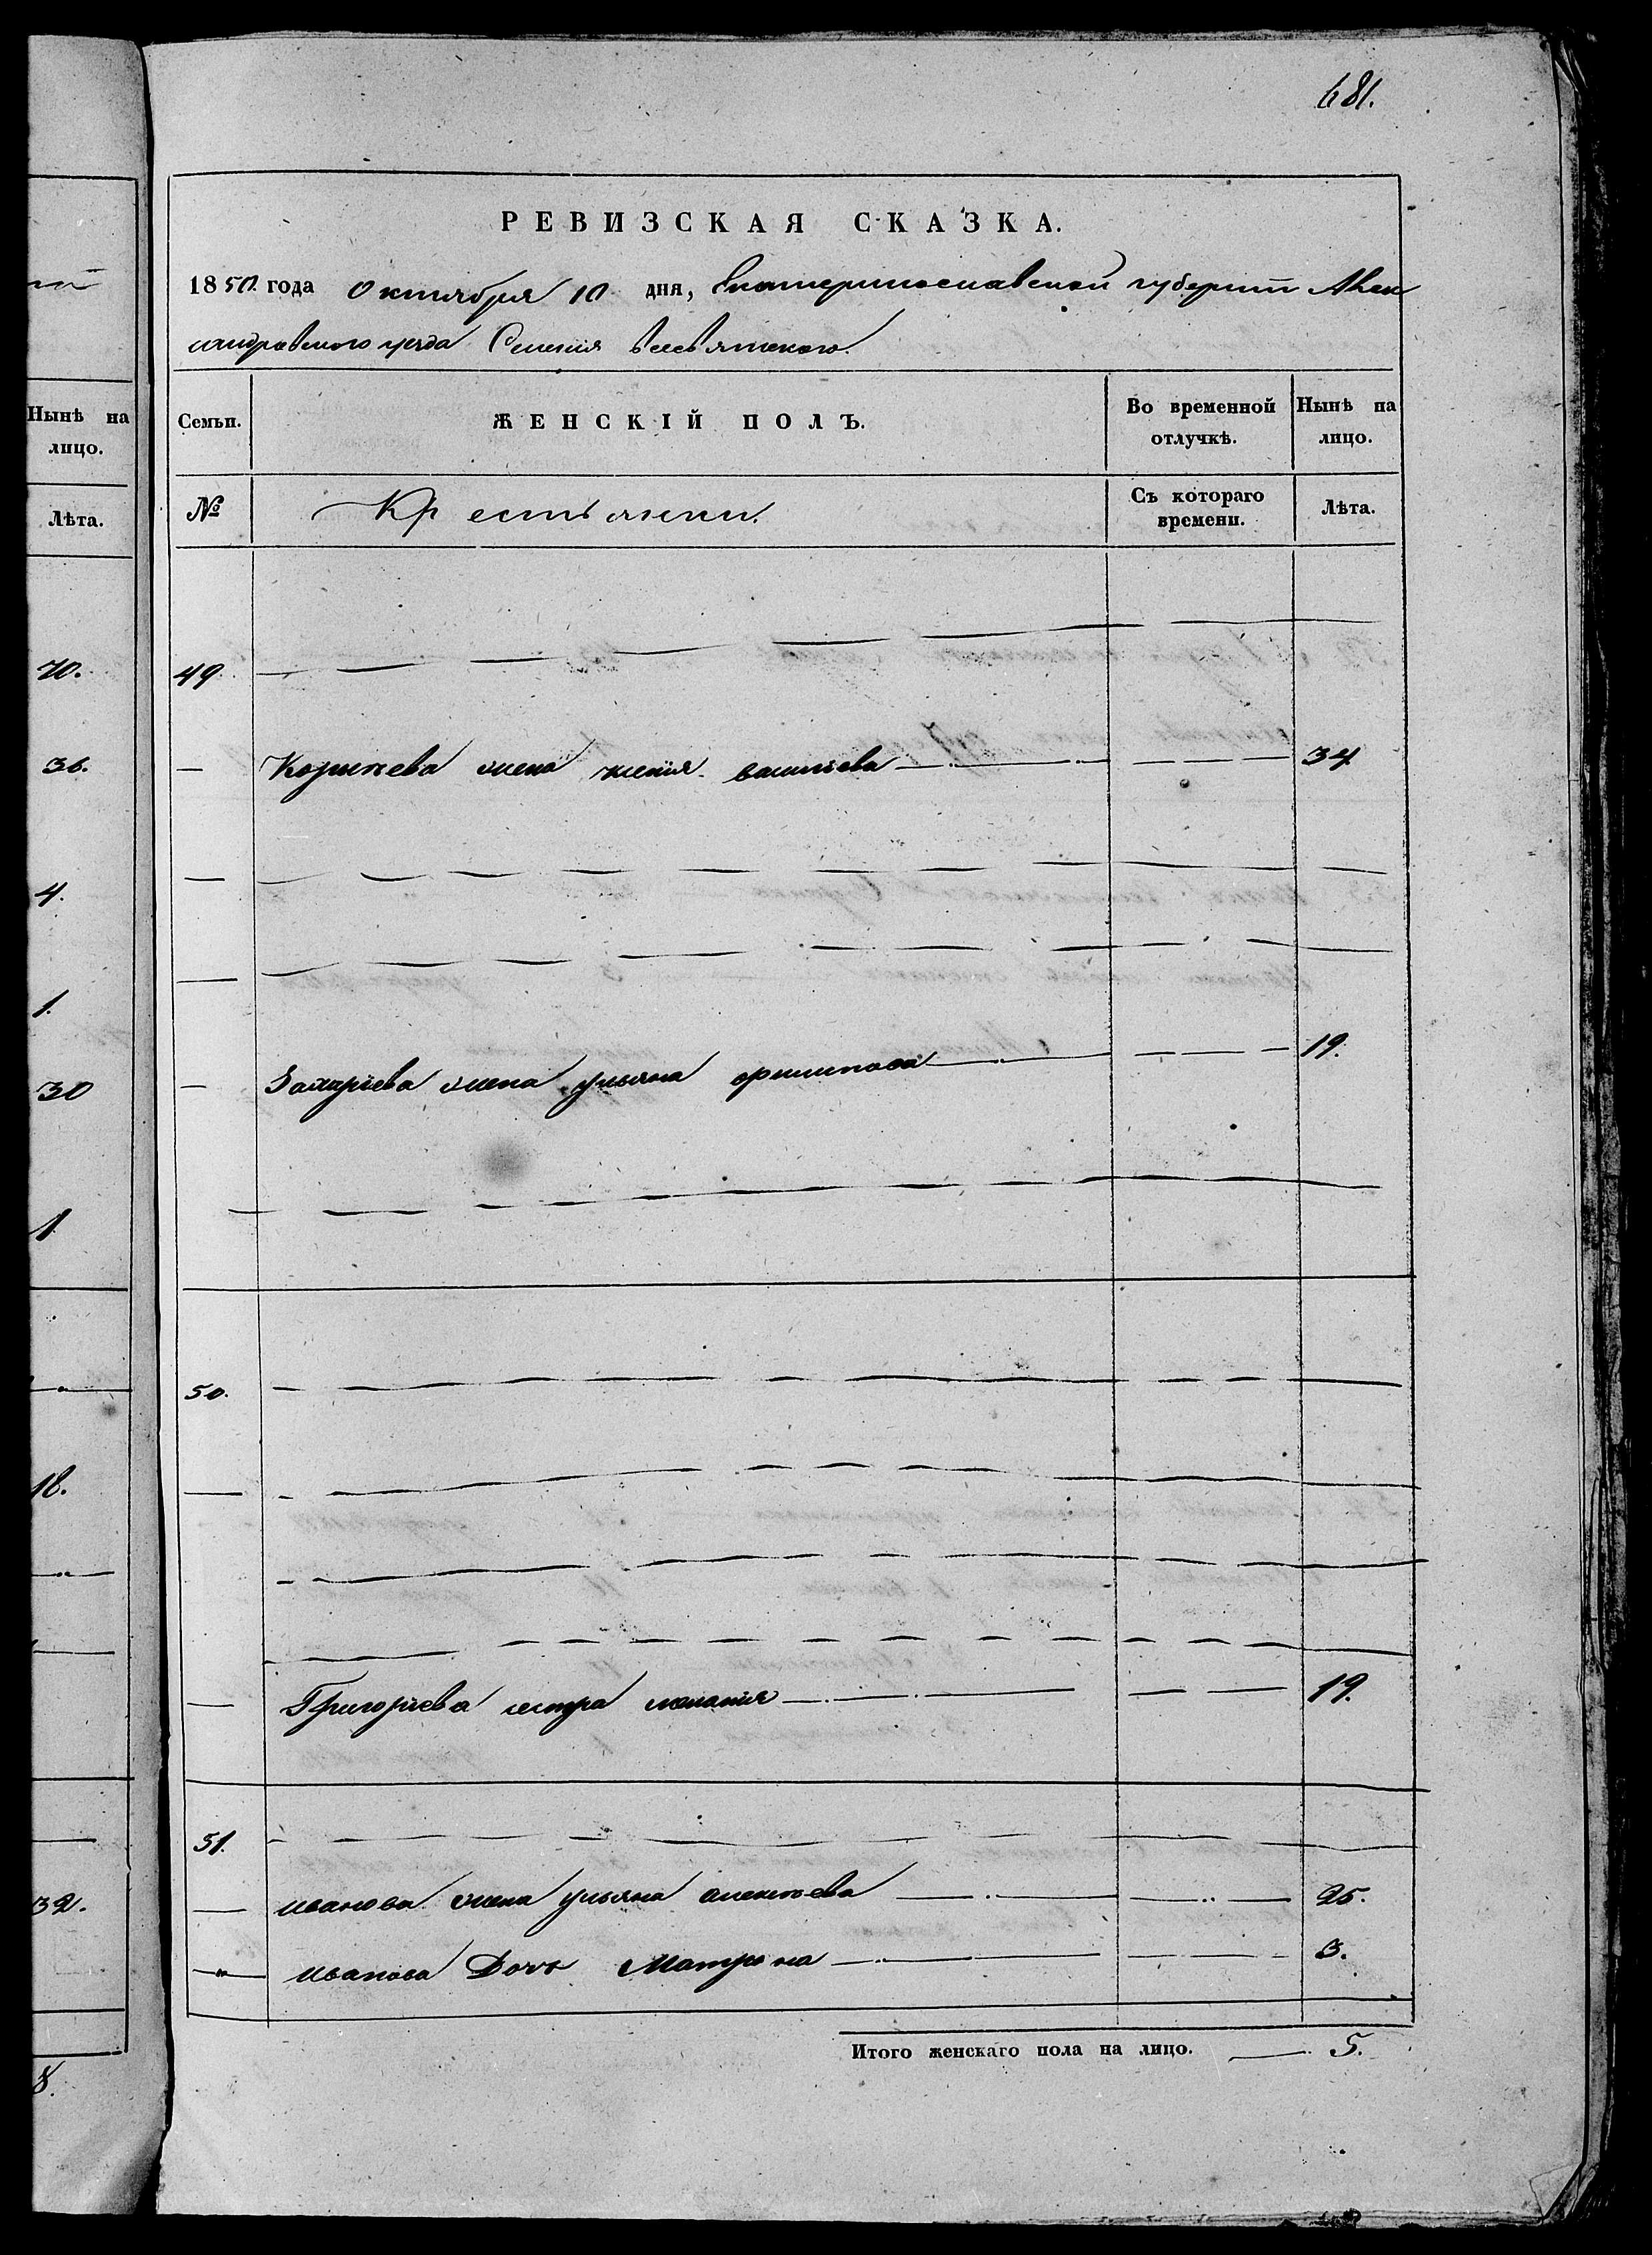 681.
РЕВИЗСКАЯ СКАЗКА.
1850. года Октября 10 дня, Екатеринославской губернiи Алек
сандровского уезда Селенiя всесвятского.
Нынѣ на лицо.
Семьи.
ЖЕНСКІЙ ПОЛЪ.
Во временной отлучкѣ.
Нынѣ на лицо.
Лѣта.
№
Крестьянки.
Съ котораго времени.
Лѣта.
70.
49
36.
жена васильева 34
4.
1.
30
Захарiева жена ульяна филипова 19.
1
50.
18.
Григорiева сестра маланiя 19.
51.
32.
иванова жена ульяна алексеева 25.
иванова Дочь Матрона 3.
Итого женскаго пола на лицо. 5.
8.